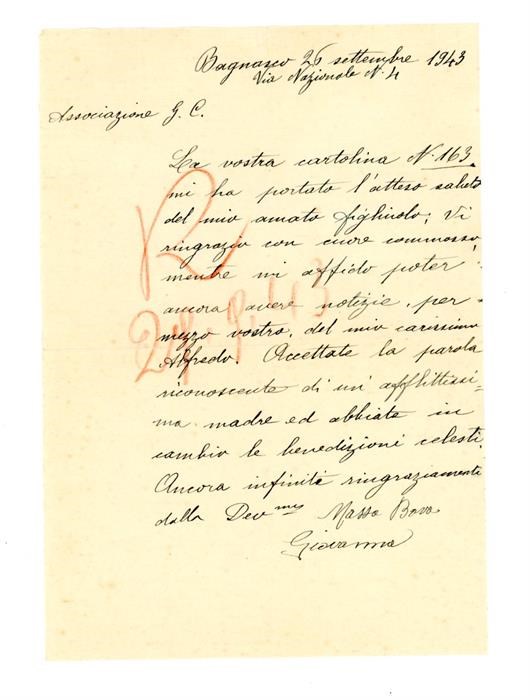 Bagnasco 26 settembre 1943
Via Nazionale N. 4
Associazione G. C.
La vostra cartolina N. 163
mi ha portato l'atteso saluto
del mio amato figliuolo; Vi
ringrazio con cuore commosso,
mentre mi affido poter
ancora avere notizie, per
mezzo vostro, del mio carissimo
Alfredo. Accettate la parola
riconoscente di un' afflittissi-
ma madre ed abbiate in
cambio le benedizioni celesti.
Ancora infinite ringraziamenti
dalla Dev.
Giovanna
R